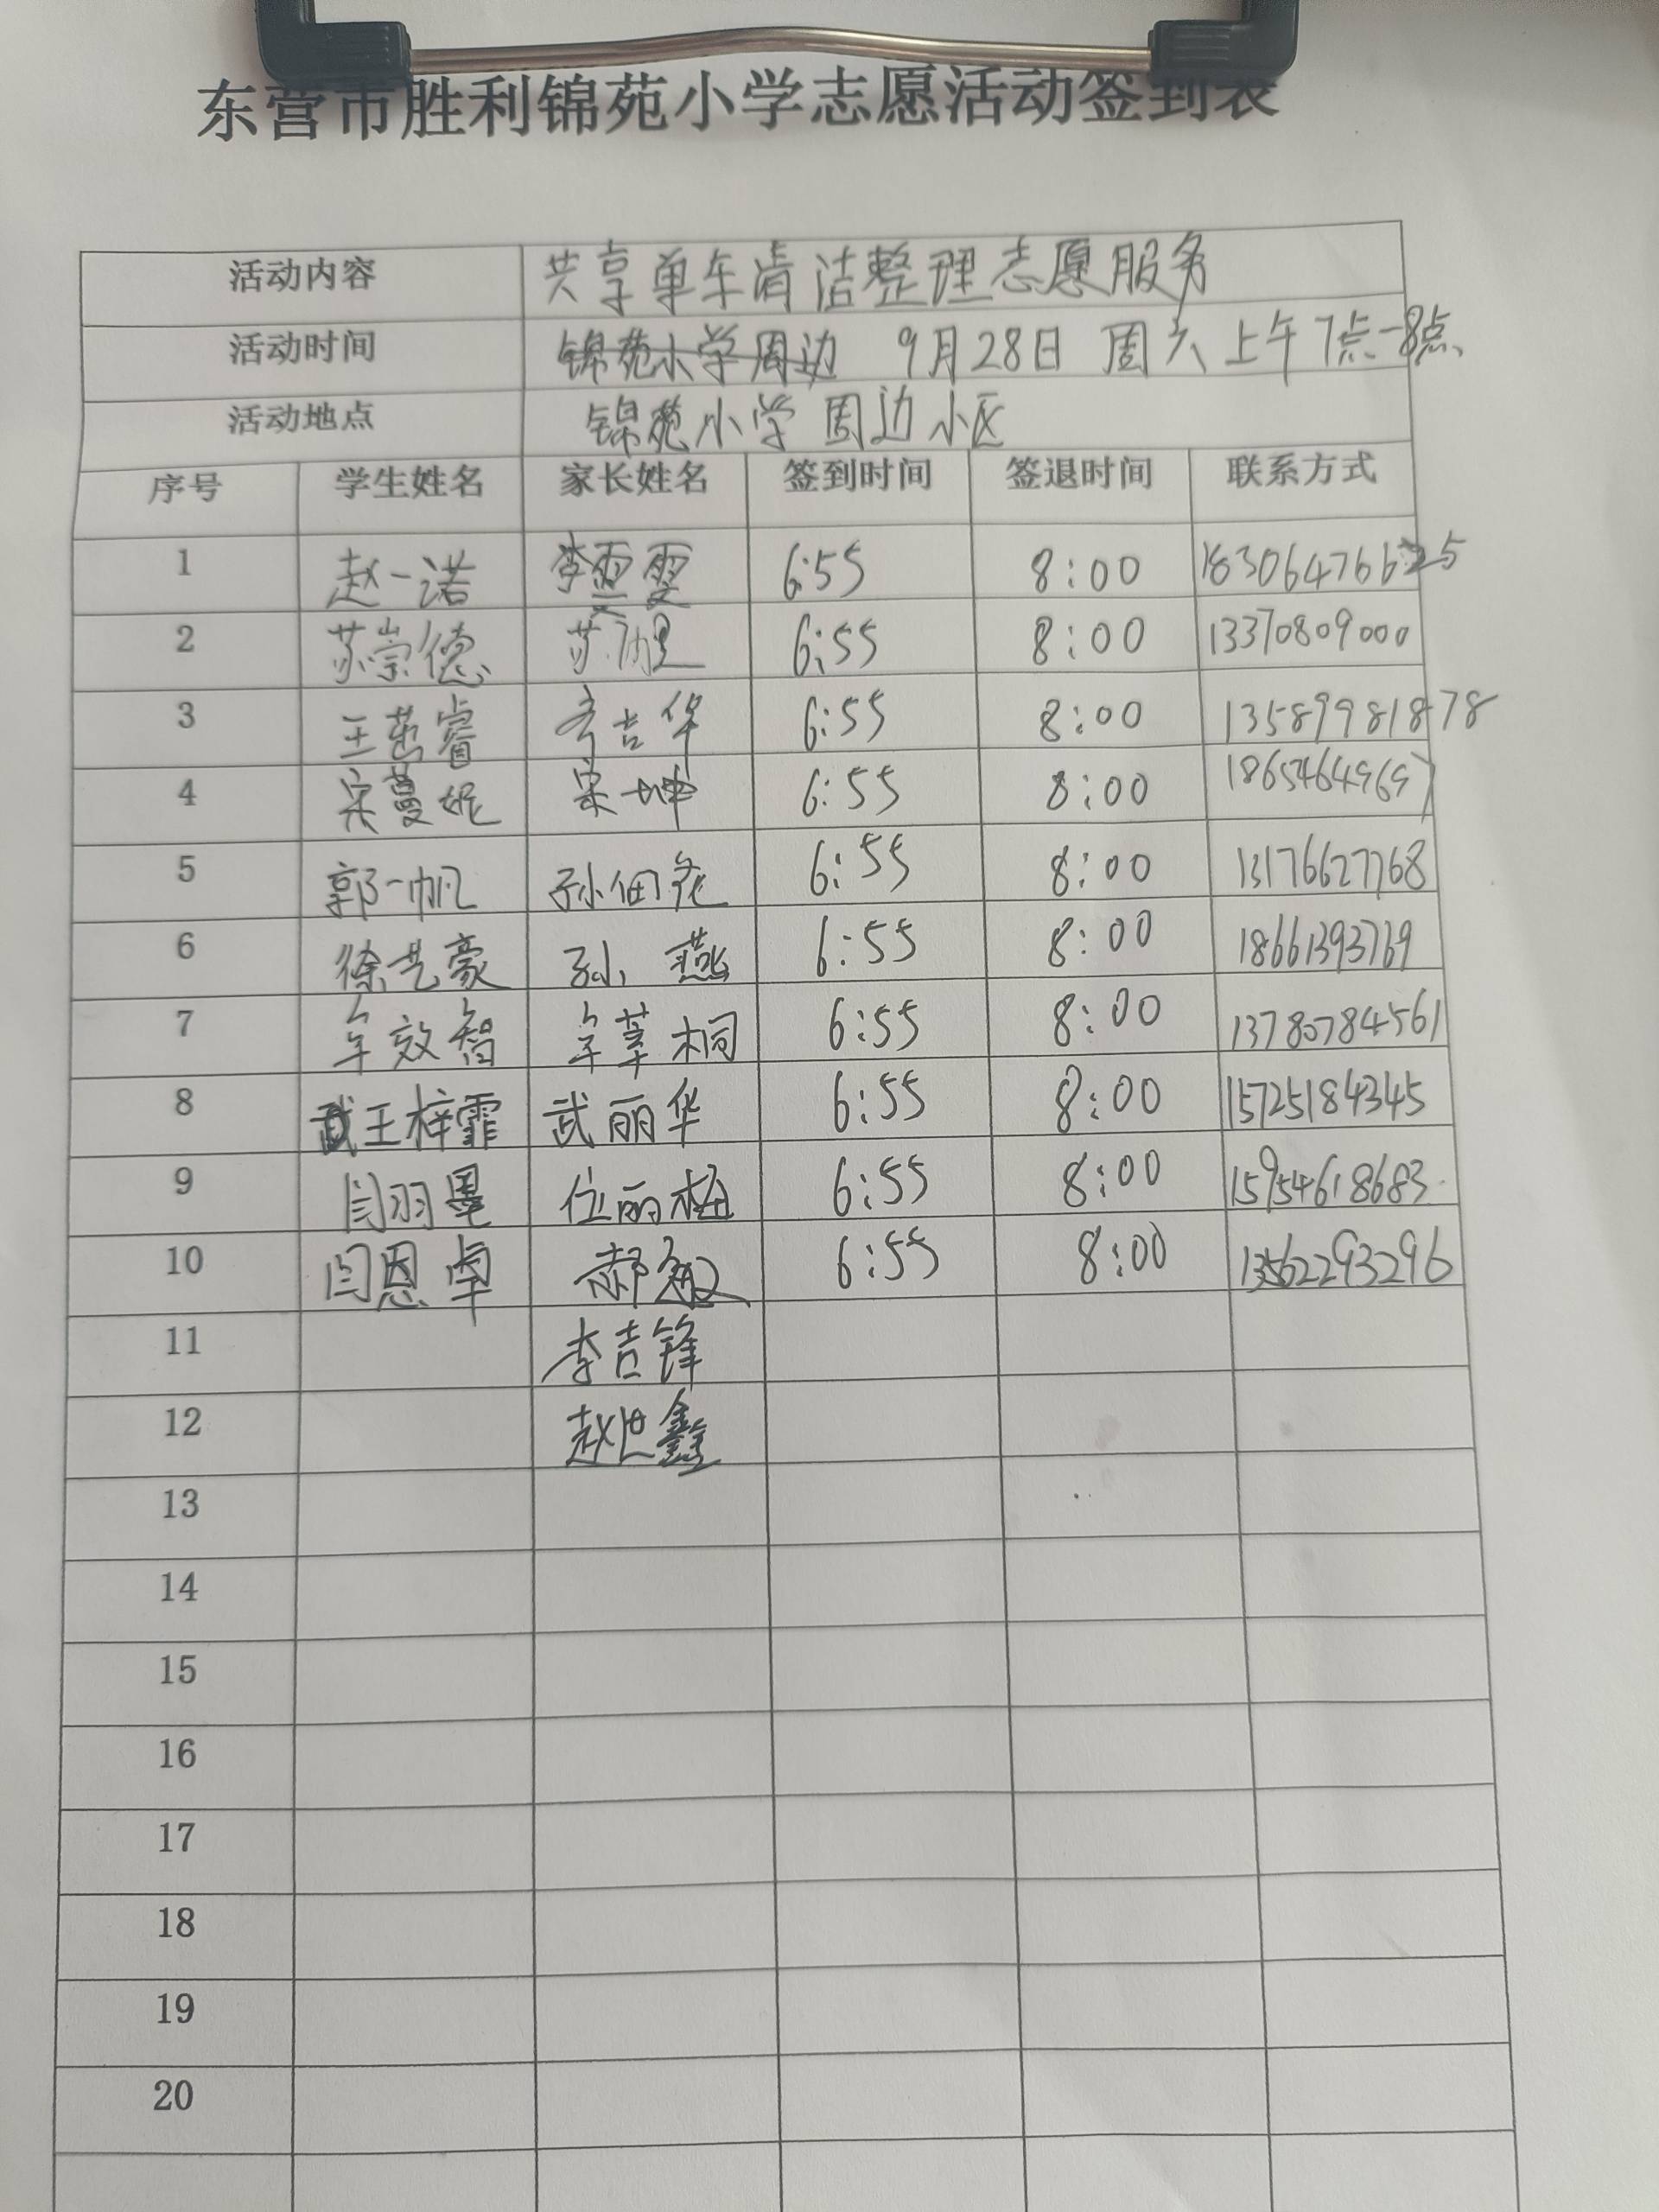 东营市胜利锦苑小学志愿活动签到表
活动内容 共享单车清洁整理志愿服务
活动时间 锦苑小学周边 9月28日 周六上午7点-8点
活动地点 锦苑小学周边小区
序号 学生姓名 家长姓名 签到时间 签退时间 联系方式
1 赵一诺 6:55 8:00
2 苏崇德 6:55 8:00 13370809000
3 6:55 8:00 13589981878
4 宋蔓妮 宋坤 6:55 8:00 18654649697
5 郭一帆 6:55 8:00 13176627768
6 徐艺豪 孙燕 6:55 8:00 18661393769
7 牟效智 牟莘桐 6:55 8:00 13780784561
8 武王梓霏 武丽华 6:55 8:00 15725184345
9 闫羽墨 位丽梅 6:55 8:00 15954618683
10 闫恩卓 郝敏 6:55 8:00 13562293296
11 李吉锋
12 赵世鑫
13
14
15
16
17
18
19
20